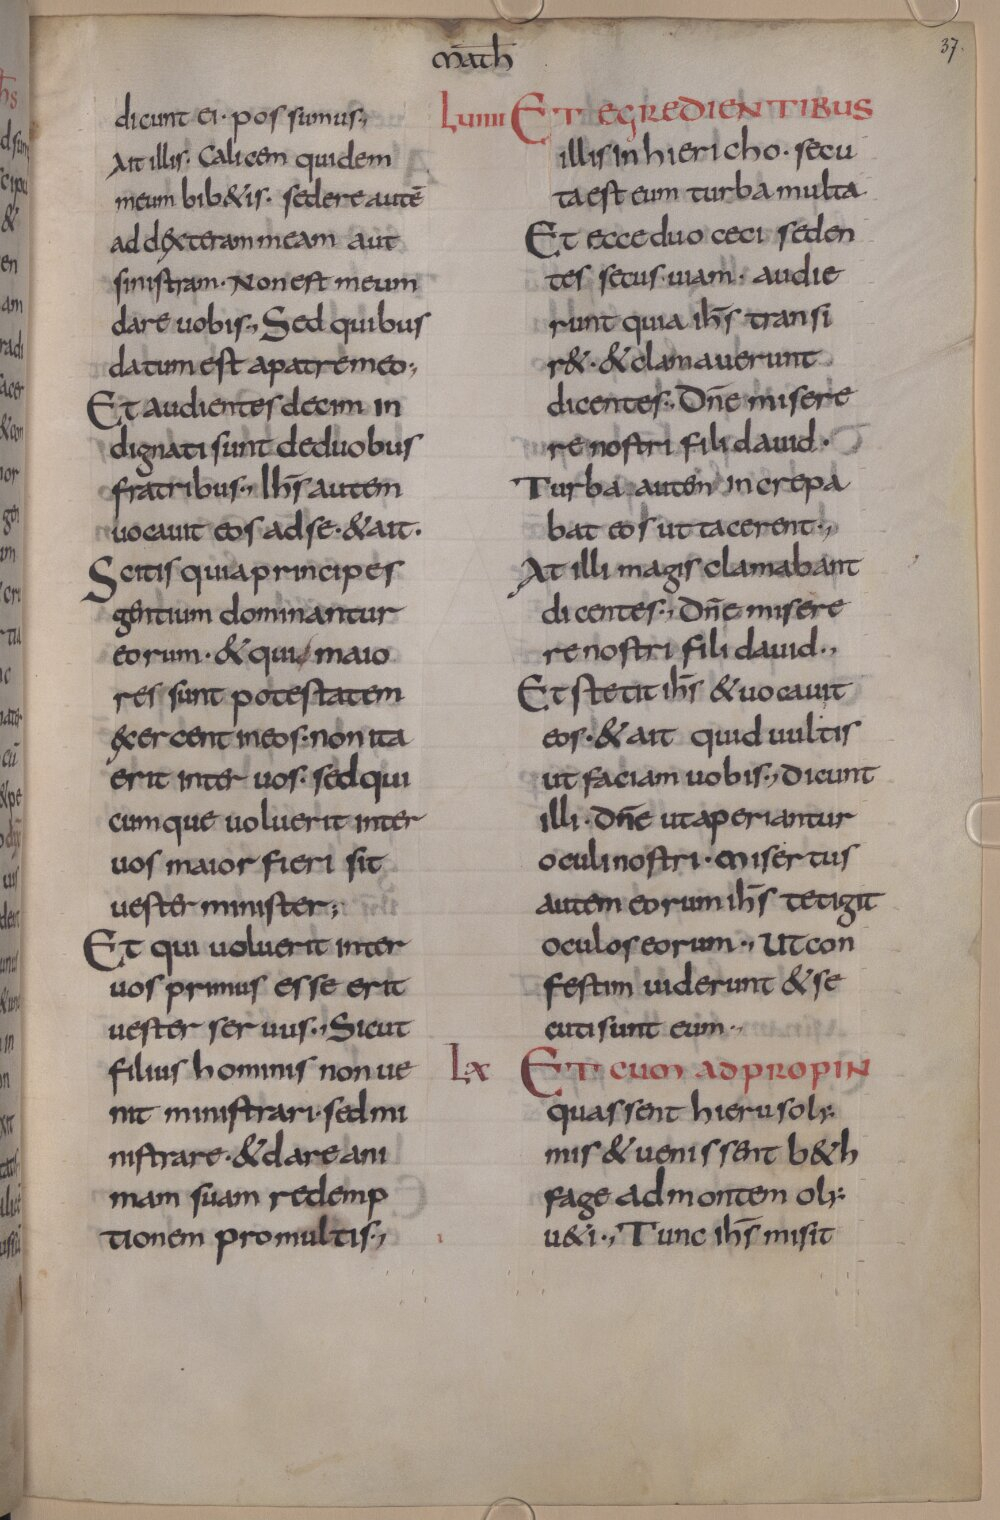 math
37.
dicunt ei· possumus.,
Ait illis· Calicem quidem
meum bib&is· sedere autē
ad dexteram meam aut
sinistram· Non est meum
dare uobis., Sed quibus
datum est apatremeo.,
Et audientes decim in
dignati sunt deduobus
fratribus., Ihs̄ autem
uocauit eos adse·&ait·
Scitis quiaprincipes
gentium dominantur
eorum·&qui maio
res sunt potestatem
excercent ineos·non ita
erit inter uos· sedqui
cumque uoluerit inter
uos maior fieri sit
uester minister.,
Et qui uoluerit inter
uos primus esse erit
uester seruus., Sicut
filius hominis non ue
nit ministrari·sed mi
nistrare·&dare ani
mam suam redemp
tionem promultis.,
Luiiii ET EGREDIENTIBUS
illis in hiericho· secu
ta est eum turba multa
Et ecce duo ceci seden
tes secus uiam· audie
runt quia ihs̄ transi
r&·&clamauerunt
dicentes., Dn̄e misere
re nostri fili dauid·
Turba autem increpa
bat eos ut tacerent.,
At illi magis clamabant
dicentes., Dn̄e misere
re nostri fili dauid.,
Et stetit ihs̄ &uocauit
eos·&ait quid uultis
ut faciam uobis., Dicunt
illi·Dn̄e utaperiantur
oculi nostri·misertus
autem eorum ihs̄ tetigit
oculos eorum., Ut con
festim uiderunt &se
cuti sunt eum.,
Lx ET CUM ADPROPIN
quassent hierusoly
mis &uenissent b&h
fage ad montem oly
u&i., Tunc ihs̄ misit